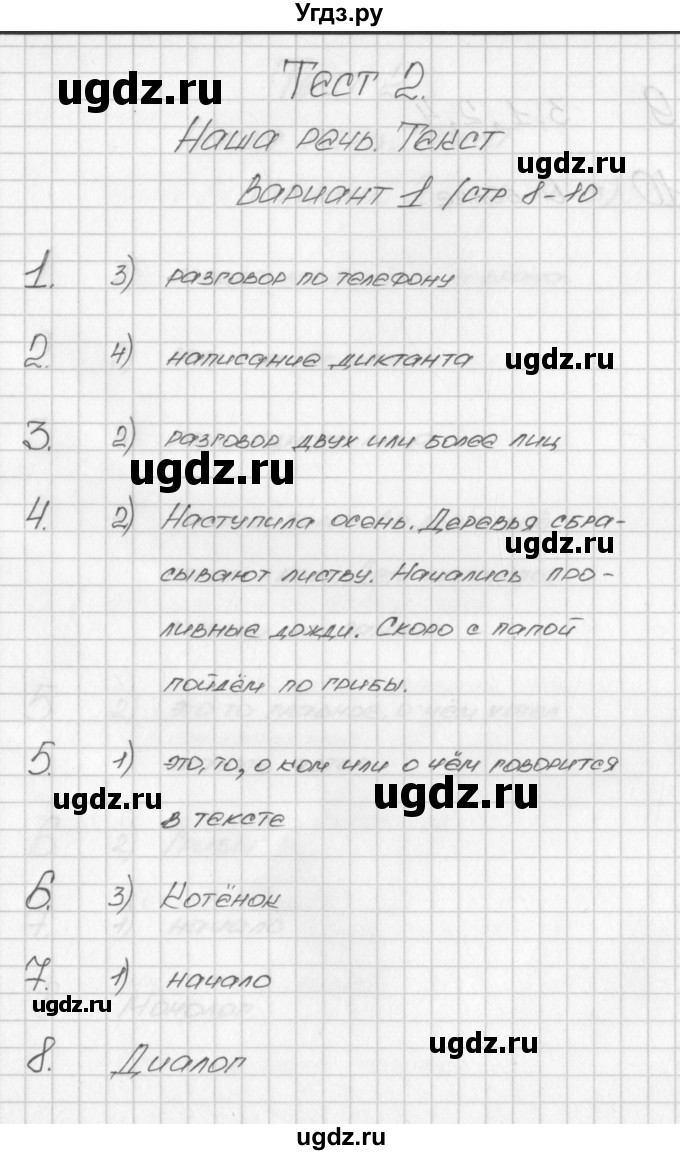 Угдз.ру
ugdz.ru
Тест 2.
Наша речь. Текст
ugdz.ru
Вариант 1 /стр 8-10
1. 3) разговор по телефону
2. 4) написание диктанта
ugdz.ru
3. 2) разговор двух или более лиц
ugdz.ru
4. 2) Наступила осень. Деревья сбра-
ugdz.ru
сывают листву. Начались про-
ливные дожди. Скоро с папой
пойдём по грибы.
5. 1) это, то, о ком или о чём говорится
ugdz.ru
ugdz.ru
в тексте
6. 3) Котёнок
7. 1) начало
ugdz.ru
ugdz.ru
8. Диалог
ugdz.ru